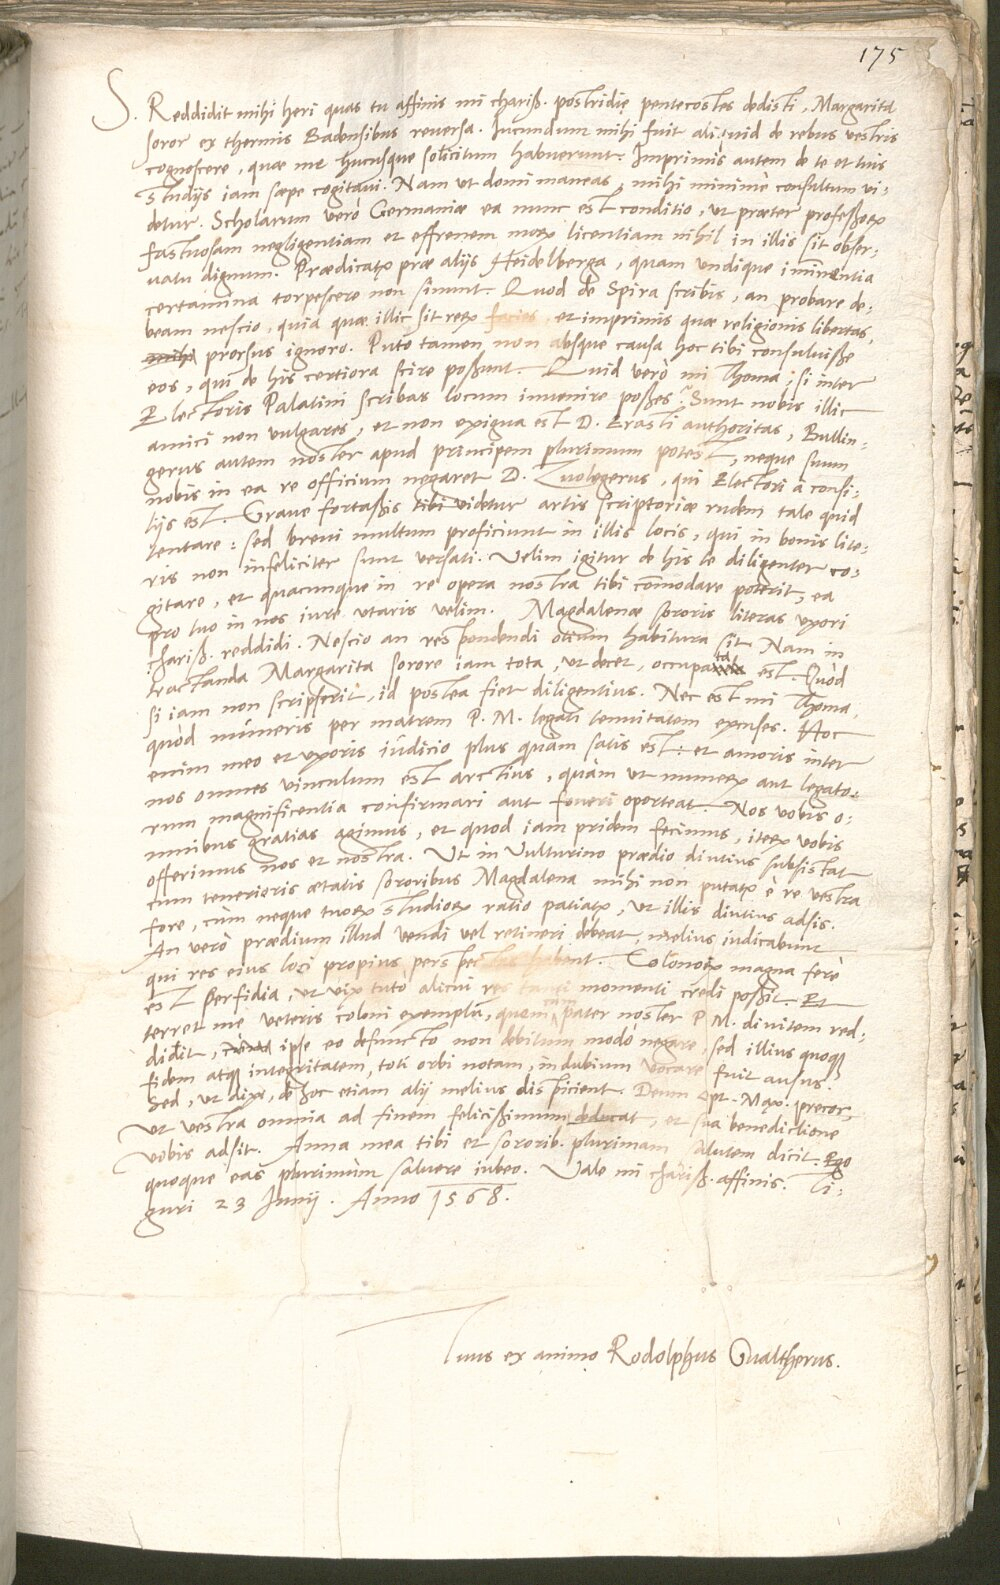 175
S. Reddidit mihi heri quas tu affinis mi chariß. postridie pentecostes dedisti, Margarita
soror ex thermis Badensibus reuersa. Iucundum mihi fuit aliquid de rebus vestris
cognoscere, quae me hucusque solicitum habuerunt. Imprimis autem de te et tuis
studijs iam saepe cogitaui. Nam ut domi maneas, mihi minimè consultum vi-
detur. Scholarum verò Germaniae ea nunc est conditio, ut praeter professorꝝ
fastuosam negligentiam et effrenem morꝝ licentiam nihil in illis sit obser-
uatu dignum. Praedicatꝝ prae alijs Heidelberga, quam undique imminentia
certamina torpescere non sinunt. Quod de Spira scribis, an probare de-
beam nescio, quia quae illic sit rerꝝ facies, et imprimis quae religionis libertas,
prorsus ignoro. Puto tamen non absque causa hoc tibi consuluisse
eos, qui de his certiora scire possunt. Quid verò mi Thoma, si inter
Electoris Palatini scribas locum inuenire posses? Sunt nobis illic
amici non vulgares, et non exigua est D. Erasti authoritas, Bullin-
gerus autem noster apud principem plurimum potest, neque suum
nobis in ea re officium negaret D. Zuolegerus, qui Electori à consi-
lijs est. Graue fortaßis tibi videtur artis scriptoriae rudem tale quid
tentare: sed breui multum proficiunt in illis locis, qui in bonis lite-
ris non infeliciter sunt versati. Velim igitur de his te diligenter co-
gitare, et quacunque in re opera nostra tibi commodare poterit, ea
pro tuo in nos iure utaris velim. Magdalenae sororis literas uxori
chariß. reddidi. Nescio an respondendi otium habitura sit. Nam in
tractanda Margarita sorore iam tota, ut decet, occupata est. Quòd
si iam non scripserit, id postea fiet diligentius. Nec est mi Thoma,
quòd muneris per matrem P. M. legati tenuitatem excuses. Hoc
enim meo et uxoris iudicio plus quàm satis est: et amoris inter
nos omnes vinculum est arctius, quàm ut munerꝝ aut legato-
rum magnificentia confirmari aut foueri oporteat. Nos vobis o-
mnibus gratias agimus, et quod iam pridem fecimus, iterꝝ vobis
offerimus nos et nostra. Ut in Vulturino praedio diutius subsistat
cum tenerioris aetatis sororibus Magdalena mihi non putatꝝ è re vestra
fore, cùm neque tuorꝝ studiorꝝ ratio patiatꝝ, ut illis diutius adsis.
An verò praedium illud vendi vel retineri debeat, melius iudicabunt
qui res eius loci propius perspectas habent. Colonorꝝ magna ferè
est perfidia, ut vix tutò alicui res tanti momenti credi poßit. Et
terret me veteris coloni exemplum, quem cùm pater noster P. M. diuitem red-
didit, ipse eo defuncto non debitum modò negare, sed illius quoque
fidem atque integritatem, toti orbi notam, in dubium vocare fuit ausus.
Sed, ut dixi, de hoc etiam alij melius dispicient. Deum Opt. Max. precor,
ut vestra omnia ad finem felicißimum deducat, et sua benedictione
vobis adsit. Anna mea tibi et sororib. plurimam salutem dicit. Ego
quoque eas plurimùm saluere iubeo. Vale mi chariß. affinis. Ti-
guri 23 Junij. Anno 1568.
Tuus ex animo Rodolphus Gualtherus.